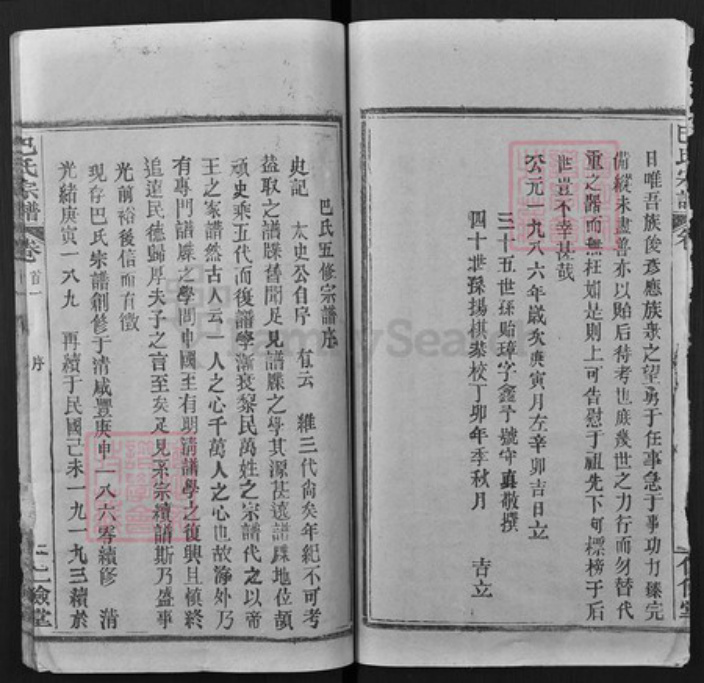 日唯吾族俊彥應族衆之望勇于任事急于事功力臻完
備縱未盡善亦以貽后待考也庶幾世之力行而勿替代
重之器而無枉如是則上可告慰于祖先下可標榜于后
世豈不幸甚哉
公元一九八六年歲次庚寅月左辛卯吉日立
三十五世孫貽璋字鑫予號守真敬撰
四十世孫揚棋恭校丁卯年季秋月 吉立
巴氏宗譜
巴氏五修宗譜序
史記 太史公自序 有云 維三代尙矣年紀不可考
蓋取之譜牒舊聞足見譜牒之學其源甚遠譜牒地位頗
頑史乘五代而後譜學漸衰黎民萬姓之宗譜代之以帝
王之家譜然古人云一人之心千萬人之心也故海外乃
有專門譜牒之學問中國至有明淸譜學之復興且愼終
追遠民德歸厚夫子之言至矣足見承宗續譜斯乃盛事
光前裕後信而有徵
現存巴氏宗譜創修于淸咸豐庚申一八六零續修 淸
光緒庚寅一八九 再續于民國己未一九一九三續於
巴氏宗譜 卷首一 序
FamilySearch